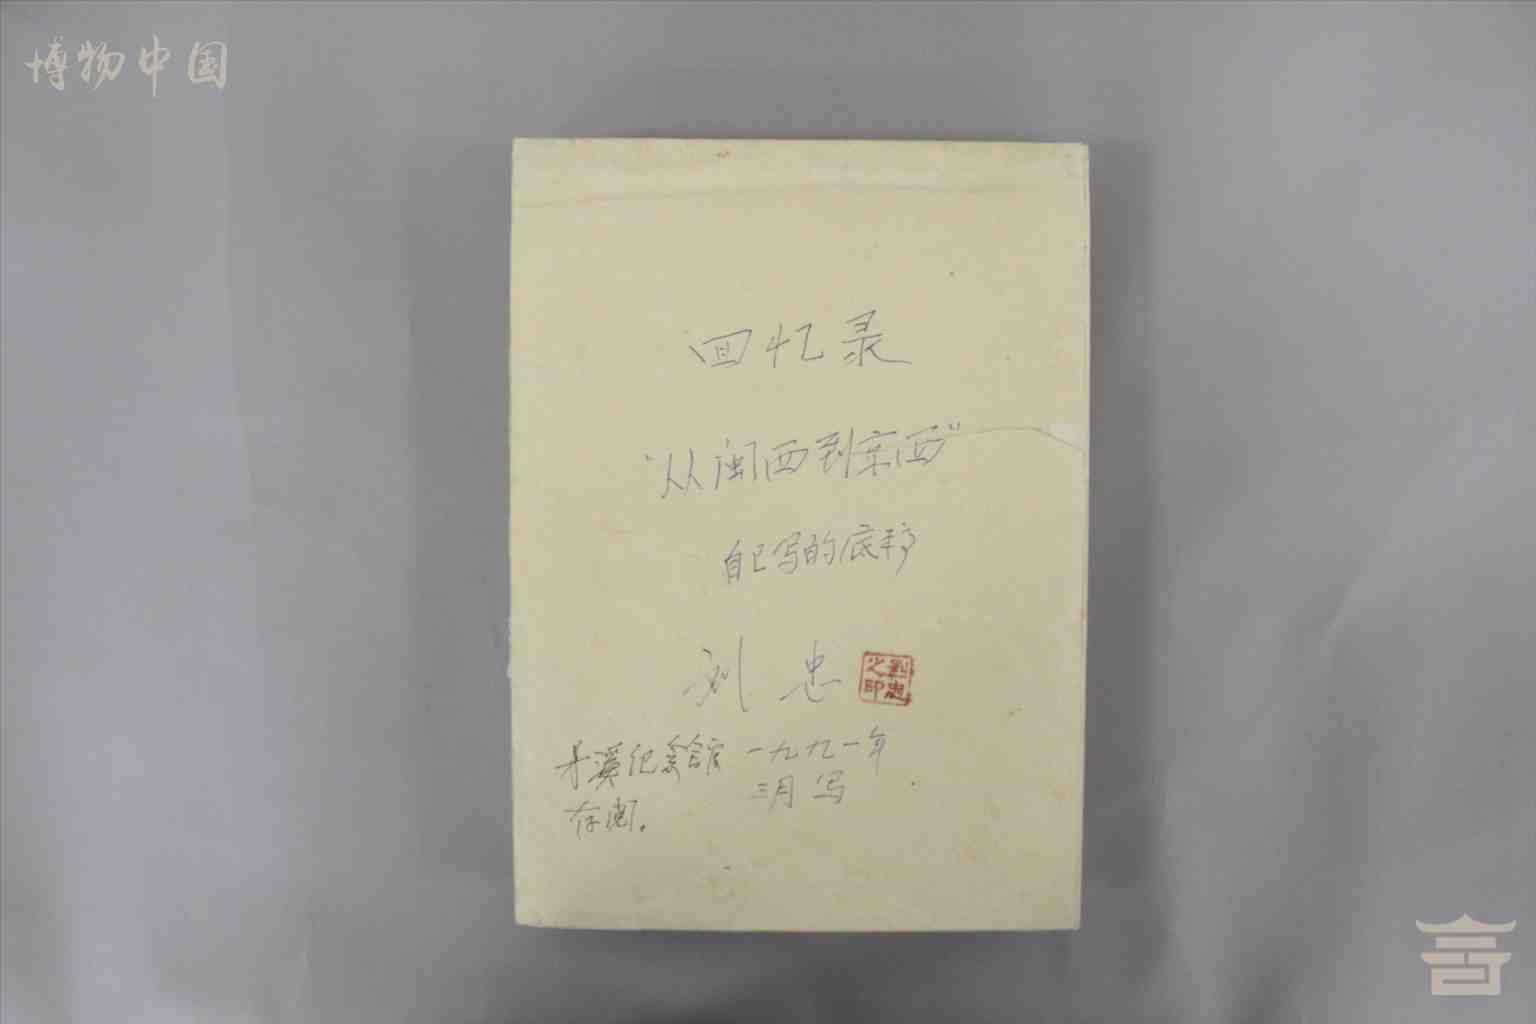 博物中国
回忆录
“从闽西到京西”
自己写的底稿
刘忠
刘忠之印
才溪纪念馆
存阅。
一九九一年
三月写